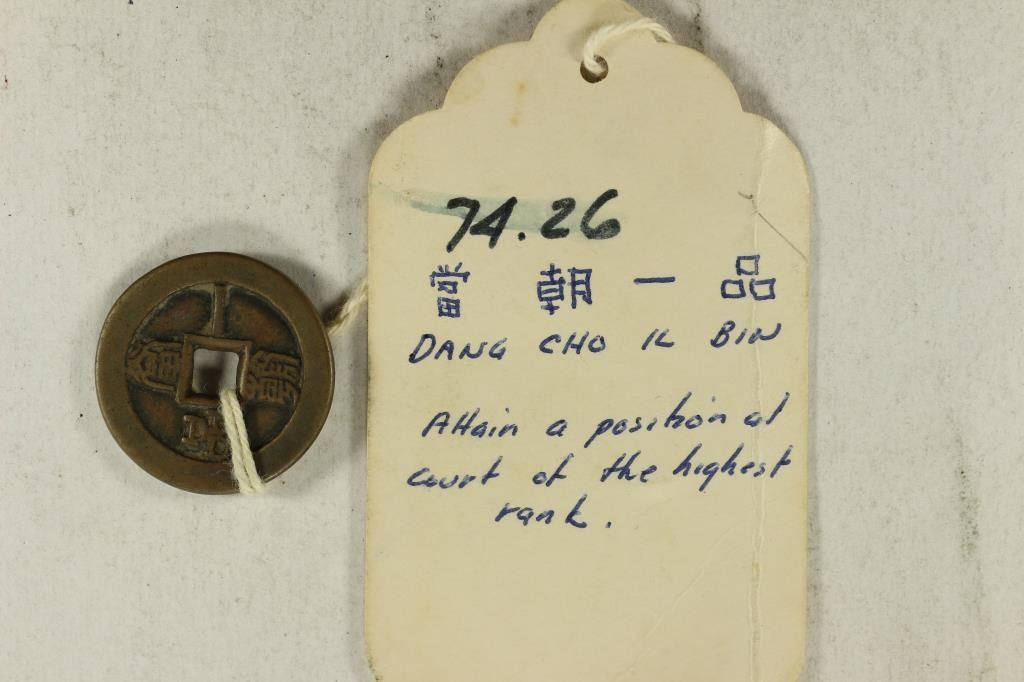 當朝一品
74.26
當 朝 一 品
DANG CHO IL BIN
Attain a position at
court of the highest
rank.